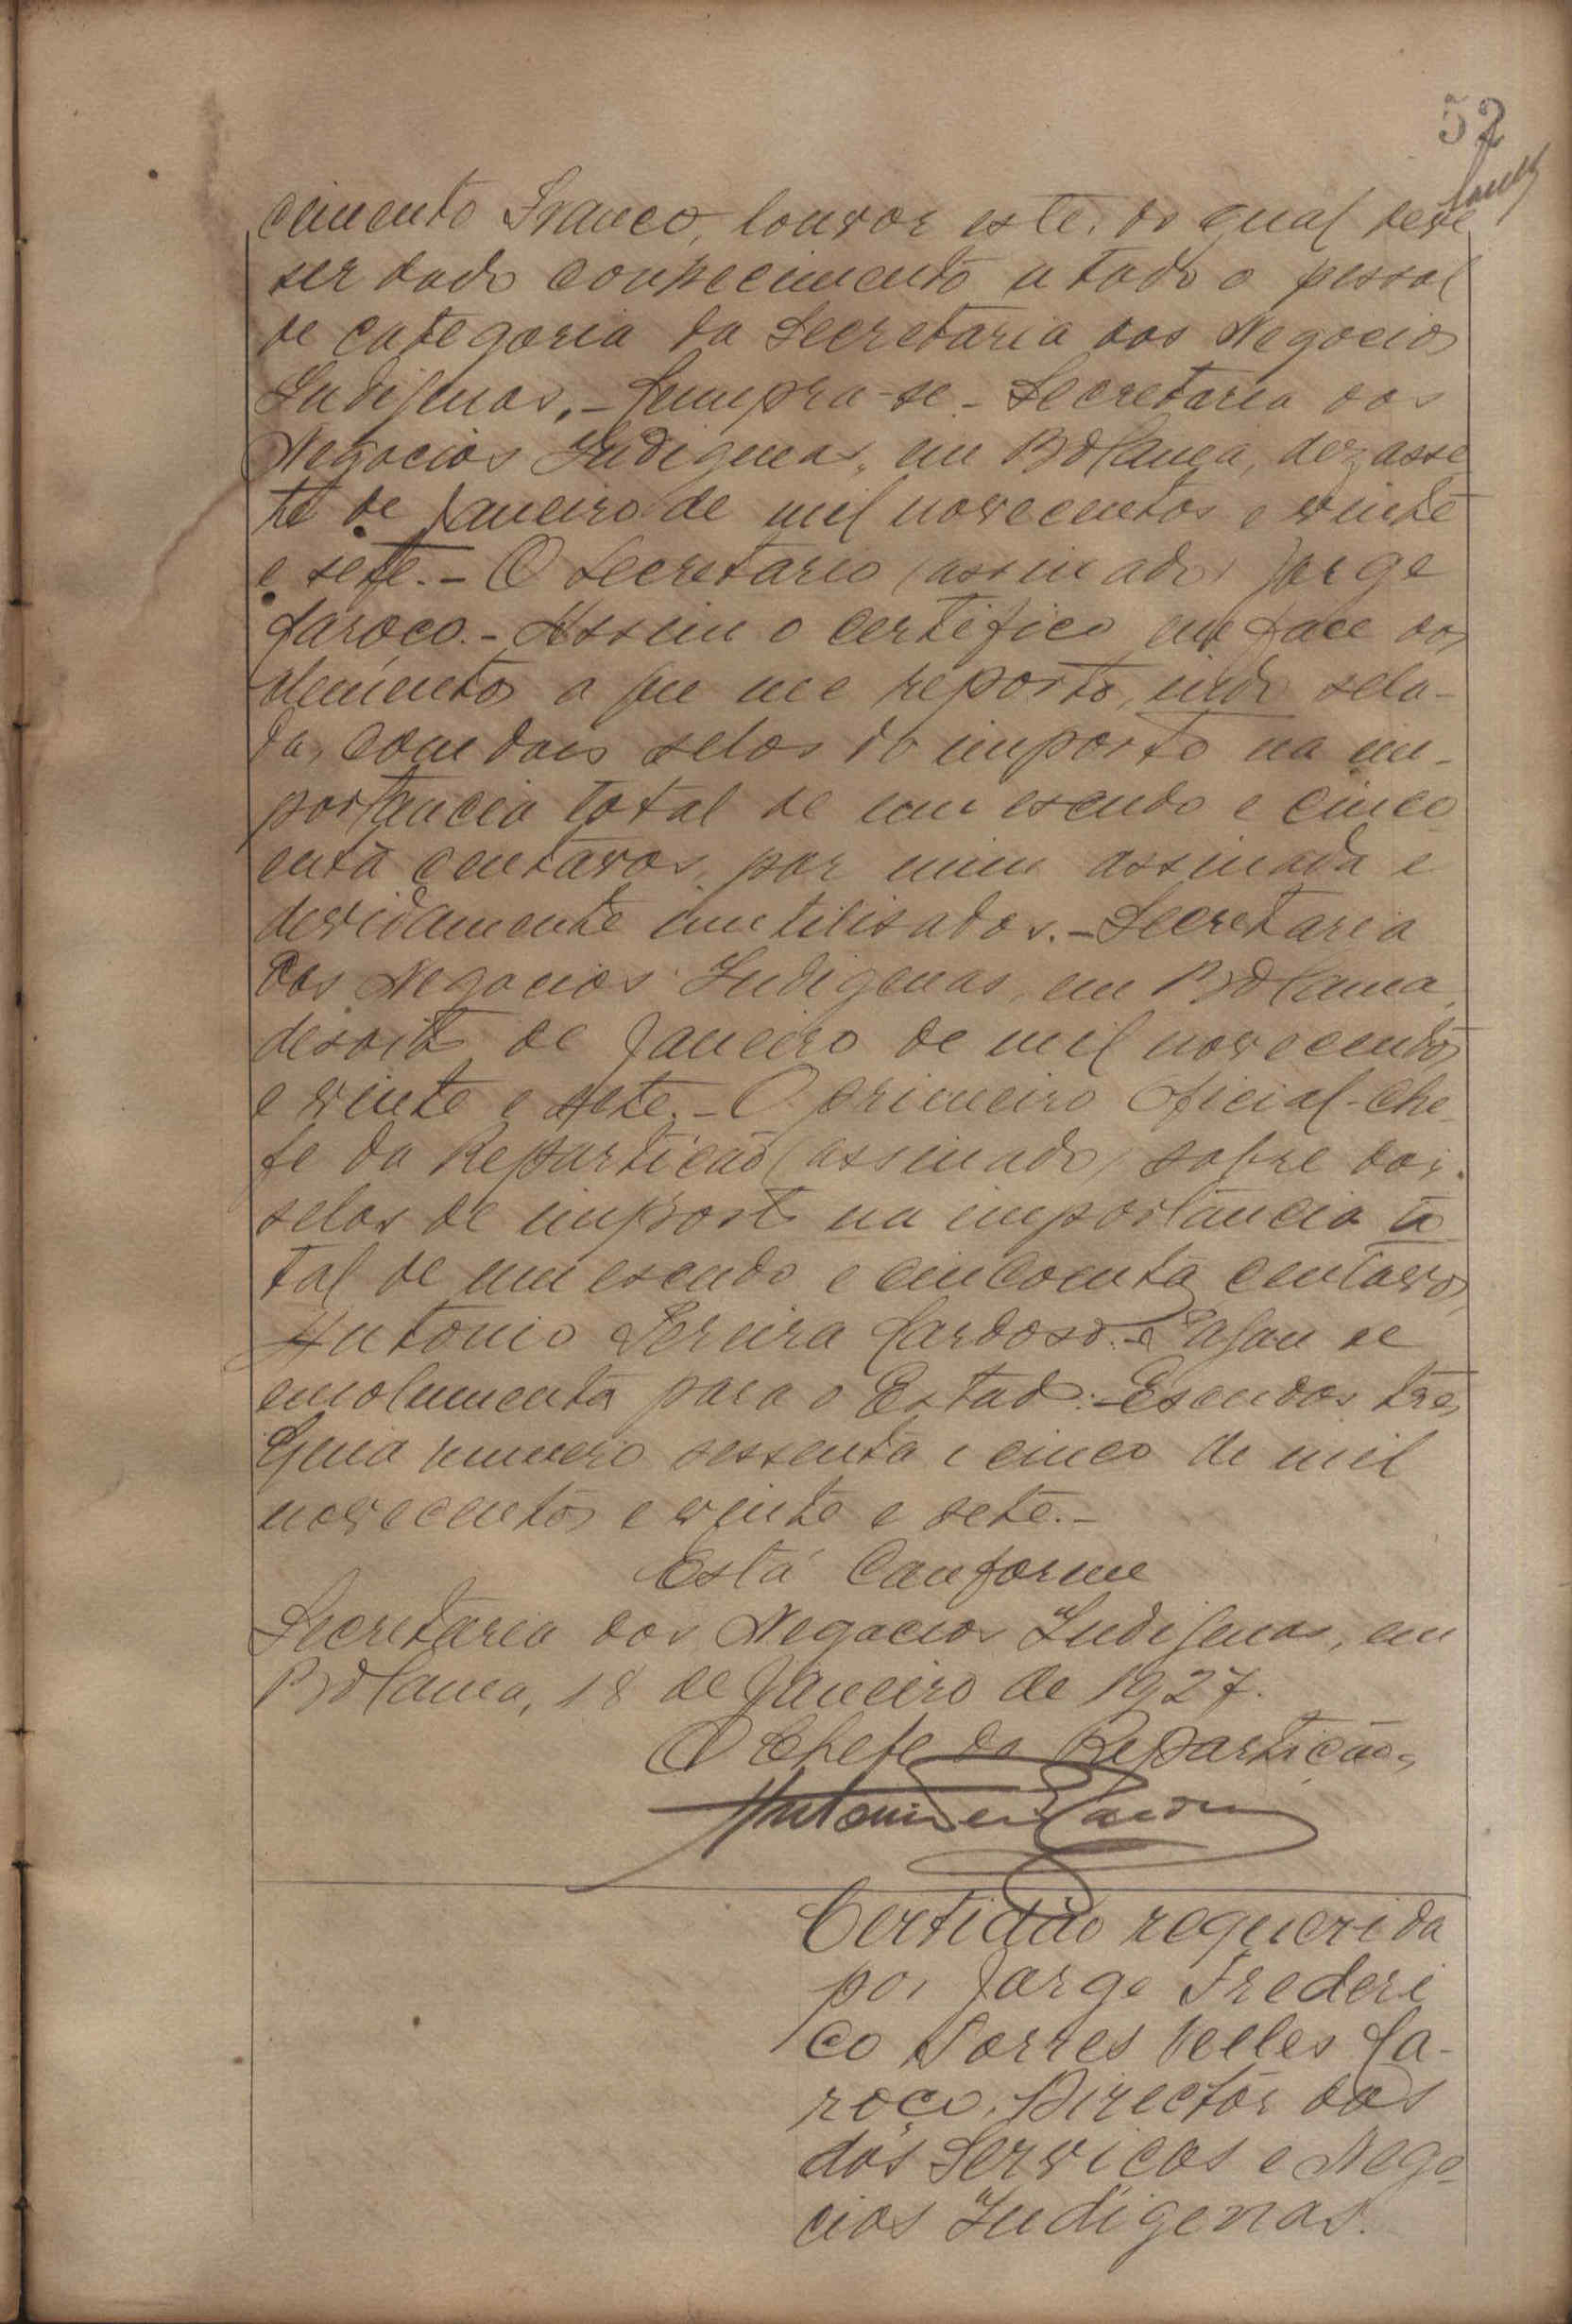 52
cimento Franco, louvor este, do qual deve
ser dado conhecimento a todo o pessoal
de categoria da Secretaria dos Negocios
Indigenas.- Cumpra-se.- Secretaria dos
Negocios Indigenas, em Bolama, dezasse
te de Janeiro de mil novecentos e vinte
e sete.- O Secretario (assinado) Jorge
Caroço.- Assim o certifico em face dos
elementos a que me reporto, indo sela-
da, com dois selos do imposto na im-
portancia total de um escudo e cinco
enta centavos, por mim assinada e
devidamente inutilisados.- Secretaria
dos Negocios Indigenas, em Bolama,
desoito de Janeiro de mil novecentos
e vinte e sete.- O primeiro Oficial-Che-
fe da Repartição (assinado) sobre dois
selos de imposto na importancia to
tal de um escudo e cincoenta centavos,
Antonio Pereira Cardoso.- Pagou de
emolumentos para o Estado:- Escudos tres,
Guia numero sessenta e cinco de mil
novecentos e vinte e sete.-
Está Conforme
Secretaria dos Negocios Indigenas, em
Bolama, 18 de Janeiro de 1927.
O Chefe da Repartição,
Certidão requerida
por Jorge Frederi
co Torres Velles Ca-
roço, Director dos
dos Serviços e Nego-
cios Indigenas.